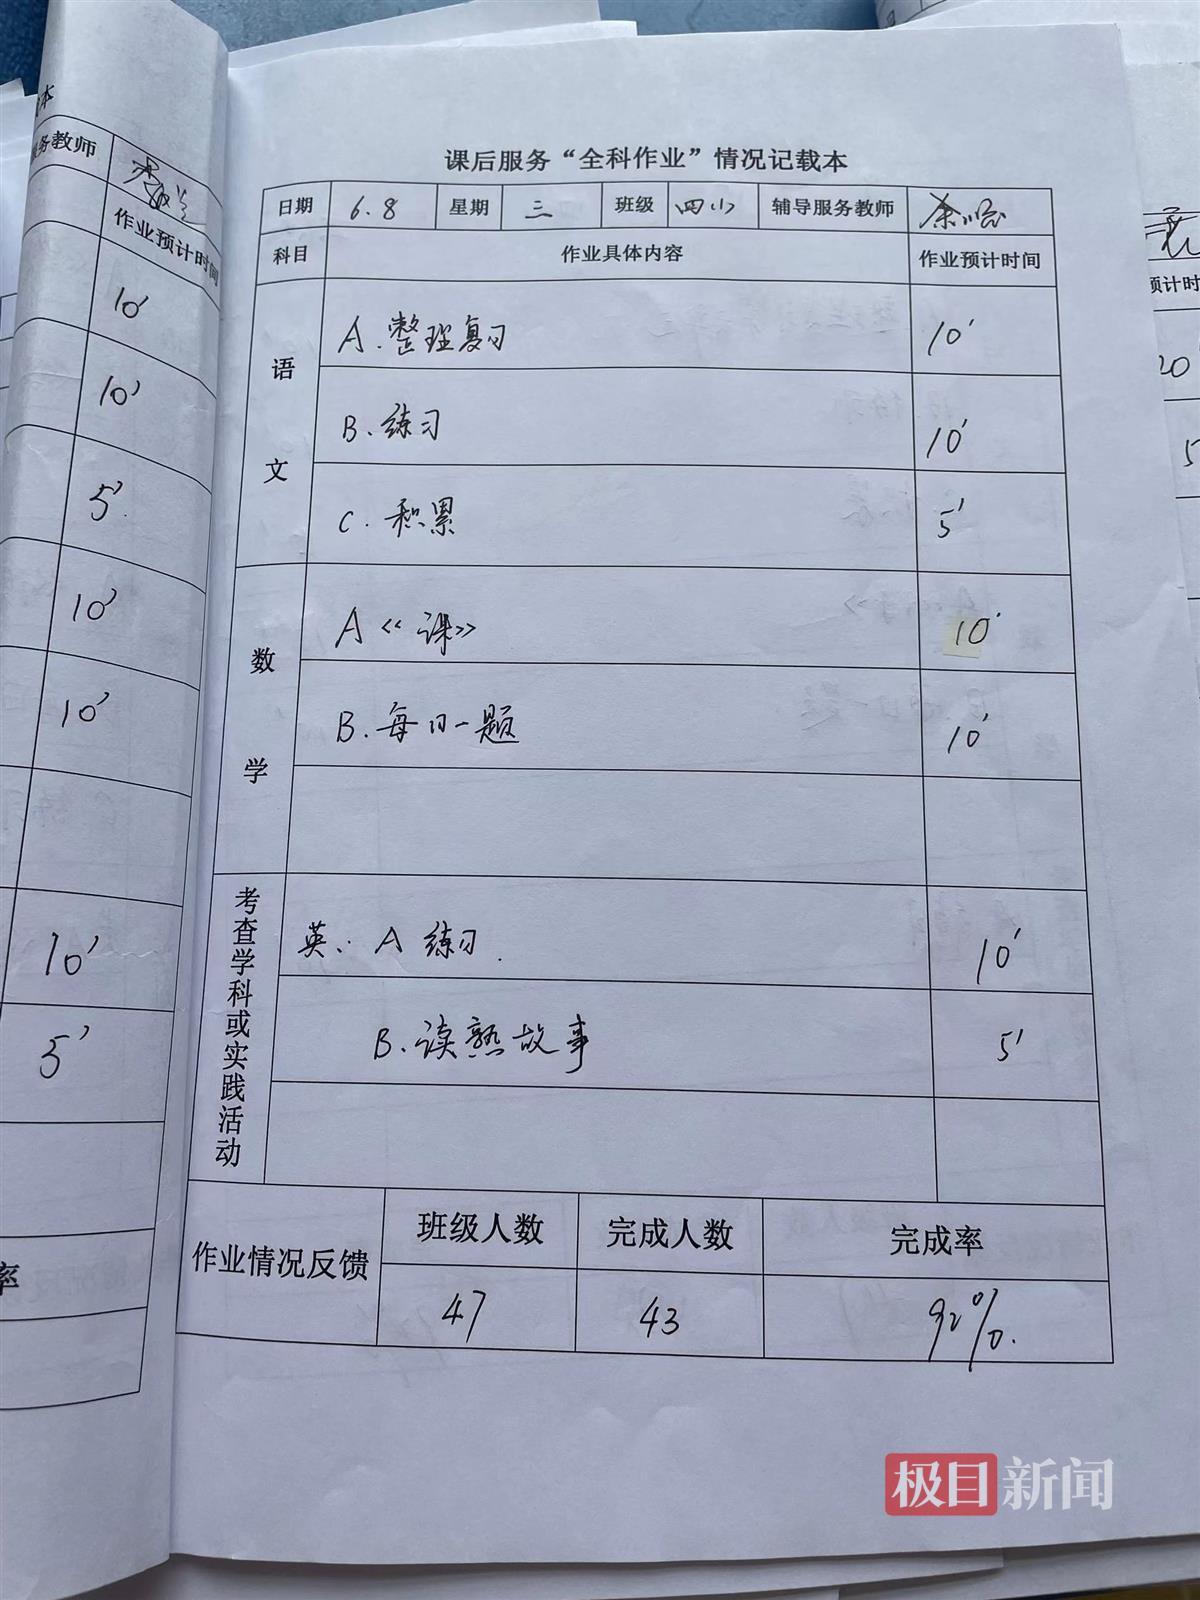 本
务教师
作业预计时间
10′
10′
5′
10′
10′
10′
5′
率
课后服务“全科作业”情况记载本
日期 6.8 星期 三 班级 四(1) 辅导服务教师
科目 作业具体内容 作业预计时间
语文
A.整理复习 10′
B.练习 10′
C.积累 5′
数学
A《课》 10′
B.每日一题 10′
考查学科或实践活动
英: A 练习. 10′
B.读熟故事 5′
作业情况反馈 班级人数 完成人数 完成率
47 43 92%.
预计时
20
5
极目新闻